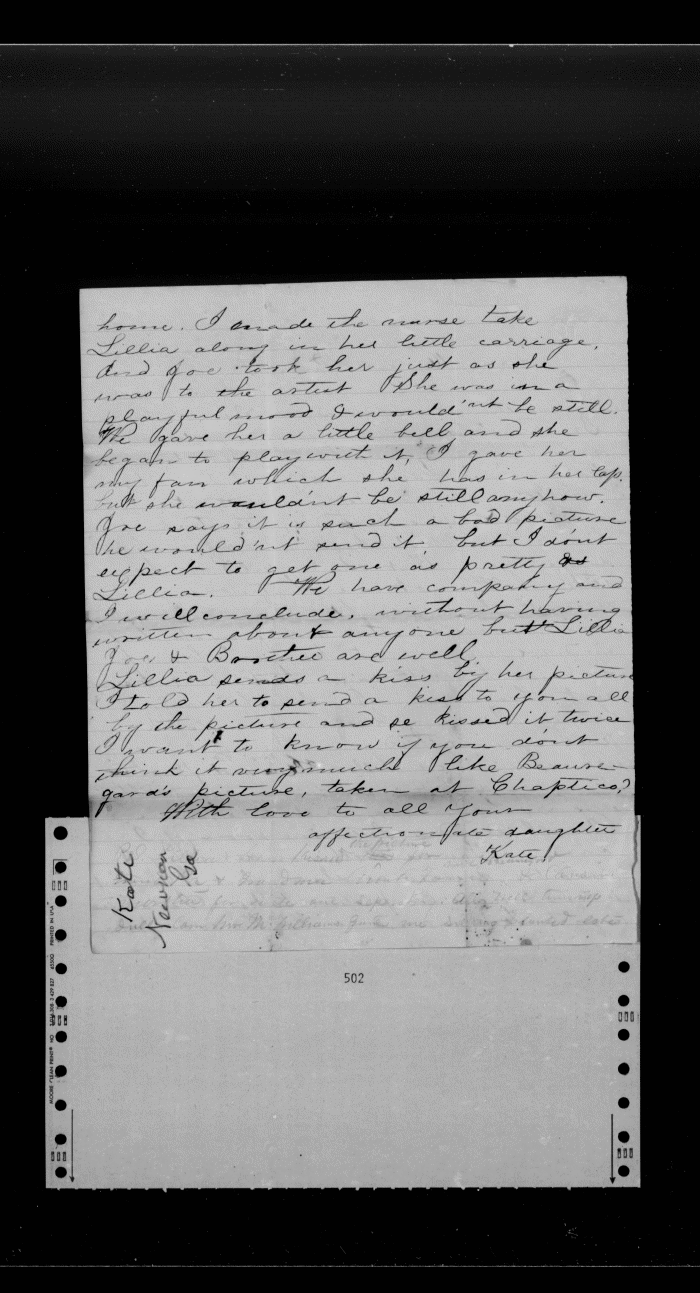 home. I made the nurse take
Lillia along in her little carriage.
And Joe took her just as she
was to the artist She was in a
playful mood & would'nt be still.
We gave her a little bell and she
began to play with it, I gave her
my fan which she has in her lap.
but she wouldn't be still anyhow.
Joe says it is such a bad picture
he would'nt send it, but I dont
expect to get one as pretty as
Lillia. We have company and
I will conclude, without having
written about anyone but Lillia
Joe & Brother are well.
Lillia sends a kiss by her picture
I told her to send a kiss to you all
by the picture and se kissed it twice
I want to know if you dont
think it very much like Beaure-
gard's picture, taken at Chaptico?
With love to all your
affectionate daughter
Kate
Kate
Newnan
Ga
502
MOORE "CLEAN PRINT"
PRINTED IN U.S.A.